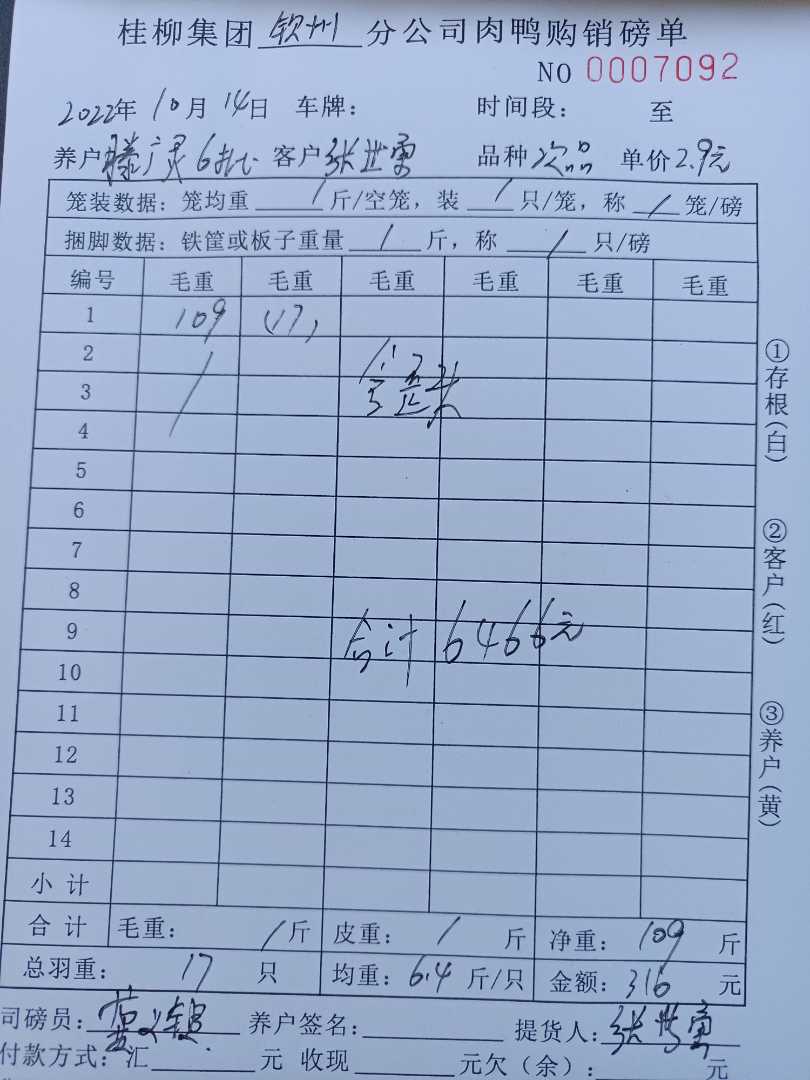 桂柳集团 钦州 分公司肉鸭购销磅单
NO 0007092
2022年 10月 14日 车牌: 时间段: 至
养户 滕广灵6批 客户 张世 品种 次品 单价 2.9元
笼装数据: 笼均重 / 斤/空笼, 装 / 只/笼, 称 / 笼/磅
捆脚数据: 铁筐或板子重量 / 斤, 称 / 只/磅
编号 毛重 毛重 毛重 毛重 毛重 毛重
1 109 (17)
2
3
4
5
6
7
8
9 合计 6466元
10
11
12
13
14
小计
合计 毛重: / 斤 皮重: / 斤 净重: 109 斤
总羽重: 17 只 均重: 6.4 斤/只 金额: 316 元
司磅员: 养户签名: 提货人: 张
付款方式: 汇 元 收现 元欠(余): 元
①存根(白)
②客户(红)
③养户(黄)